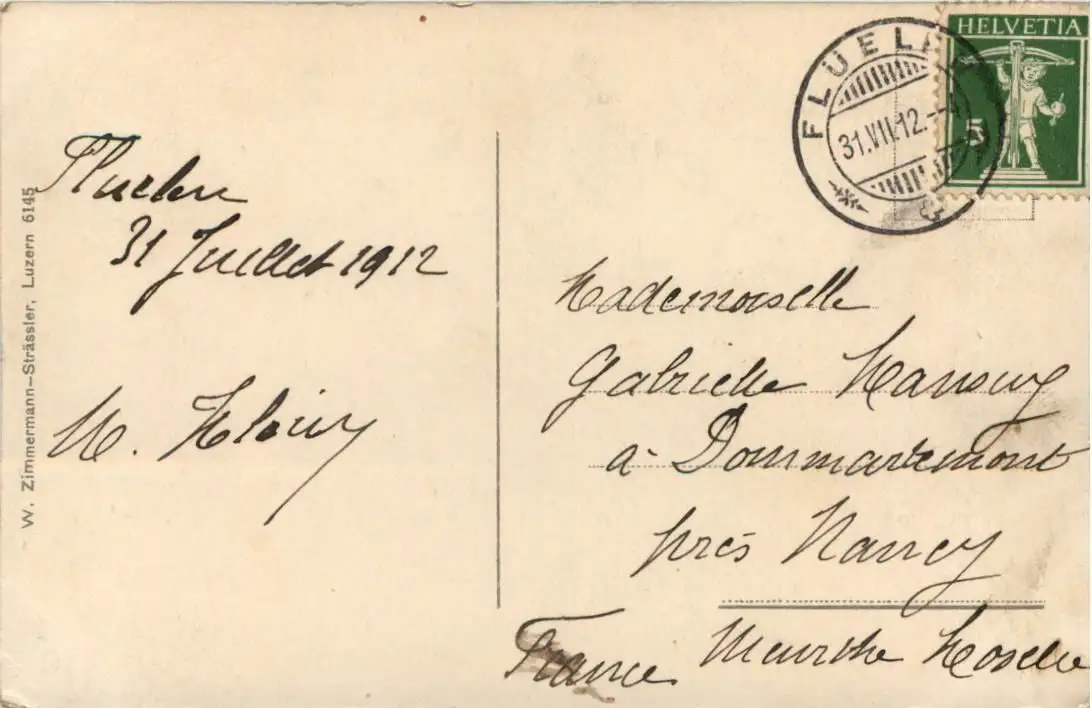 HELVETIA
5
FLÜELEN
31.VII.12.-4
Fluelen
31 Juillet 1912
M.
Mademoiselle
Gabrielle Mansuy
à Dommartemont
près Nancy
Meurthe Moselle
France
W. Zimmermann-Strässler, Luzern 6145